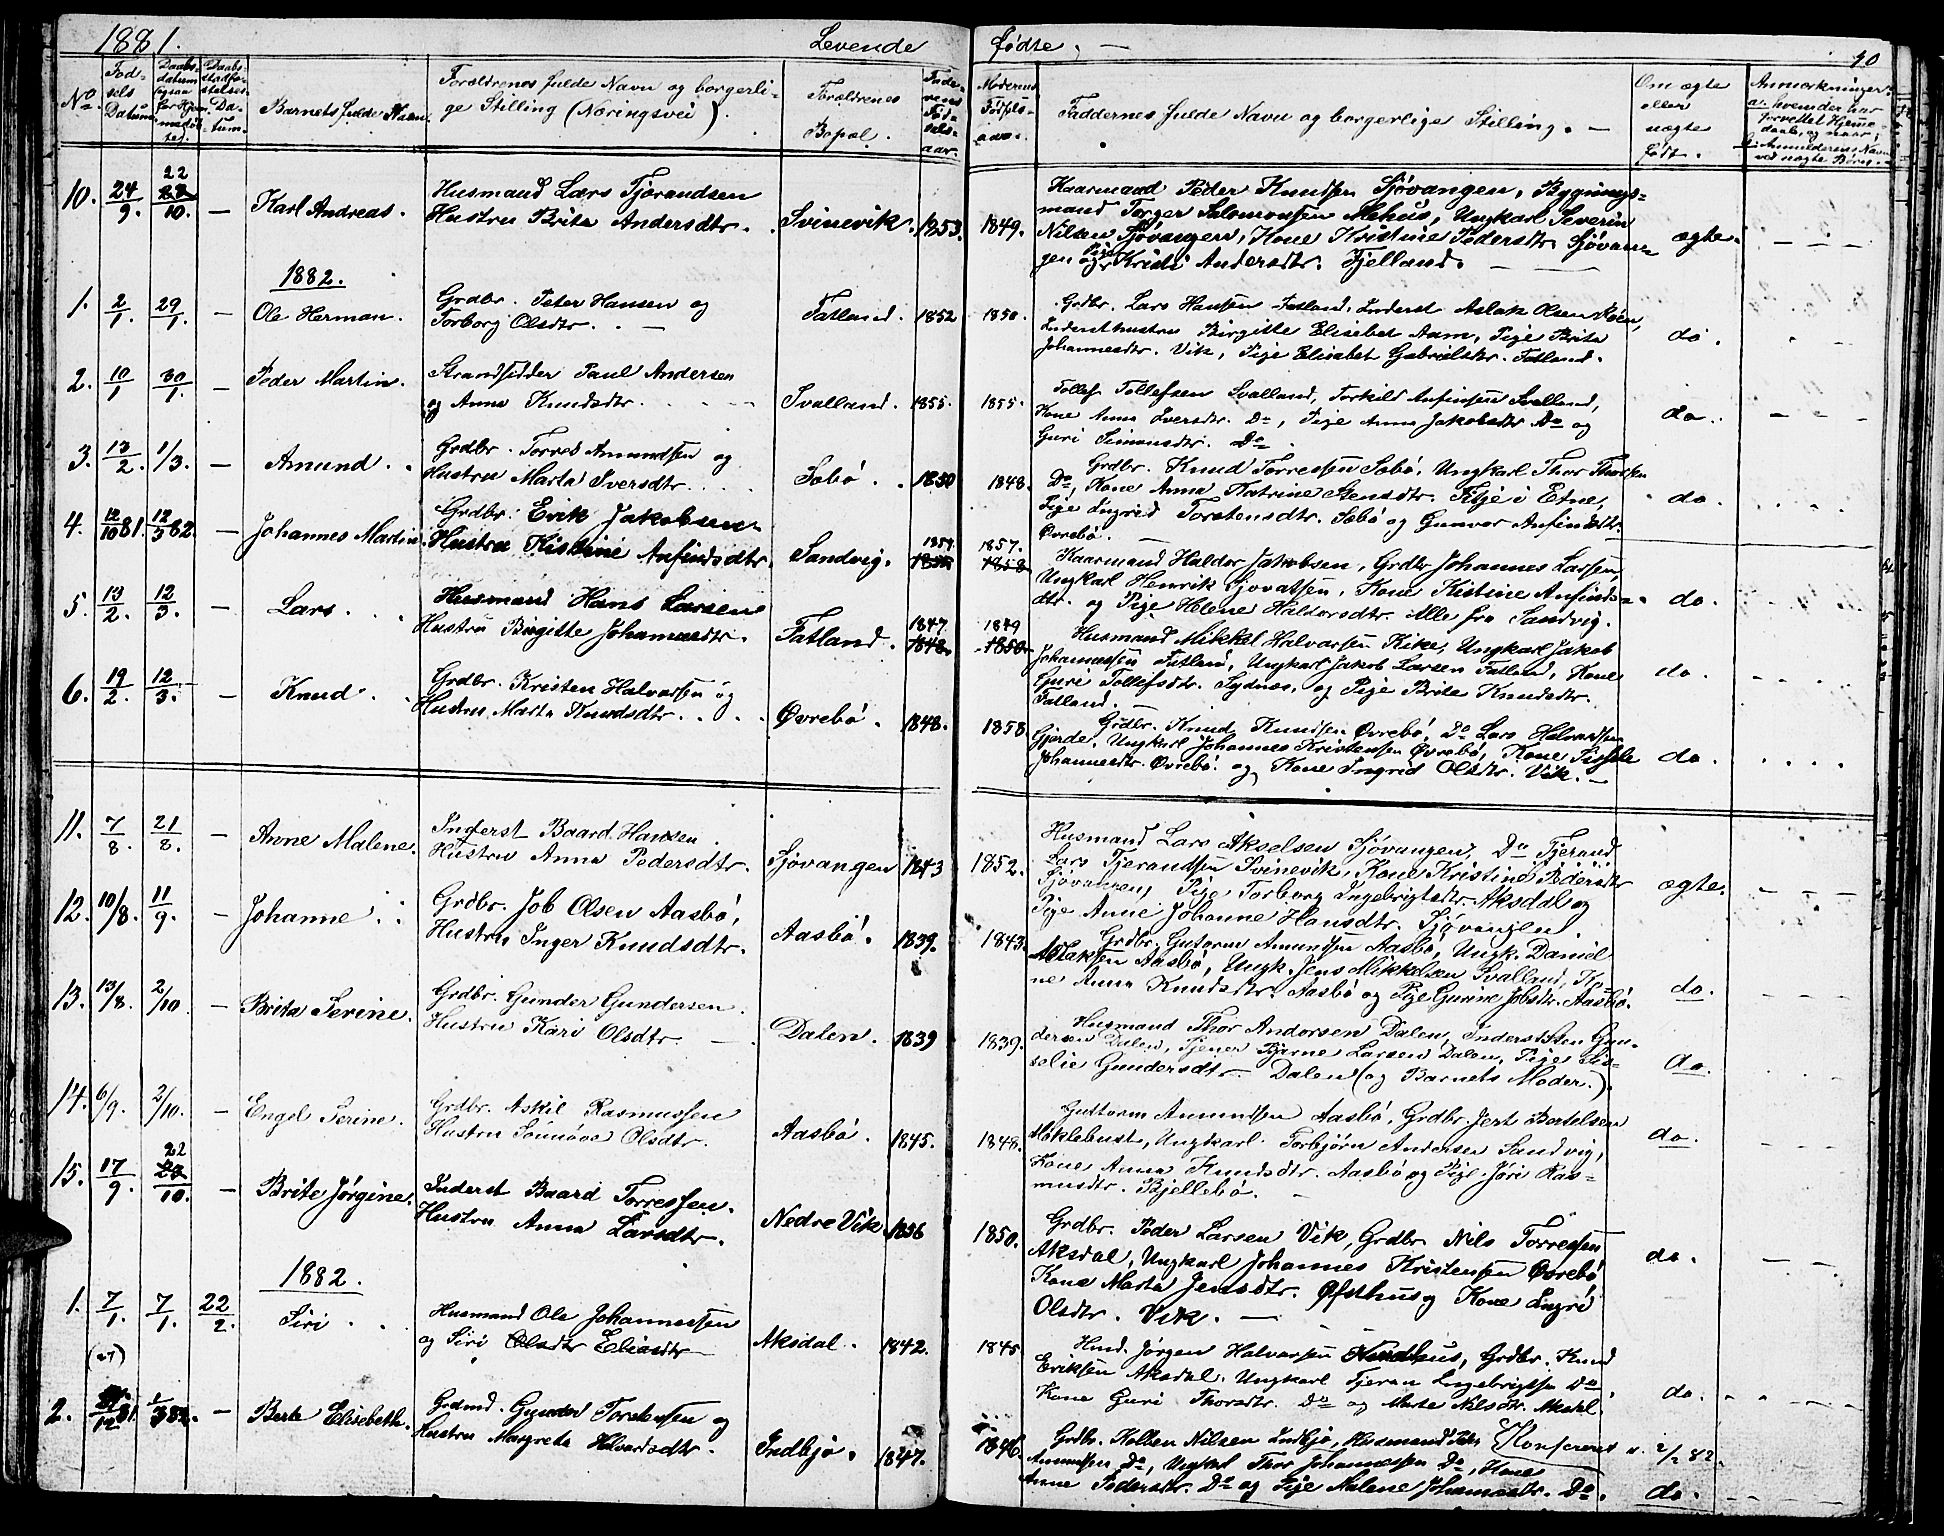 1881.
Levende
fødte. —
40
No.
Fød-
sels
Datum
Daabs-
datum
(ogsaa
for Hjem-
medøb-
te).
Daabs-
stadfæ-
stelses-
Da-
tum.
Barnets fulde Navn
Forældrenes fulde Navn og borgerli-
ge Stilling (Næringsvei).
Forældrenes
Bopæl.
Fade-
rens
Fød-
sels-
aar.
Moderens
Fødsels-
aar.
Faddernes fulde Navn og borgerlige Stilling. —
Om ægte
eller
uægte
født.
Anmærkninger
a. hvem der har
forrettet Hjemme
daab, og naar;
b. Anmelderens Navn
ved uægte Børn.
10. 24/9. 22/10. — Karl Andreas. Husmand Lars Tjerandsen
Hustru Brita Andersdtr. Svinevik. 1853. 1849.
Kaarmand Peder Knudsen Sjøvangen, Bygnings-
mand Torger Salomonsen Mehus, Ungkarl Severin
Nilsen Sjøvangen, Kone Kristine Pedersdtr. Sjøvan-
gen og Pige Kristi Andersdtr. Fjelland. ægte.
1882.
1. 2/1. 29/1. — Ole Herman. Grdbr. Peter Hansen og
Torborg Olsdtr. Fatland. 1852 1850.
Grdbr. Lars Hansen Fatland, Inderst Aslak Olsen Røen,
Indersthustru Birgitte Elisebet Aam, Pige Brita
Johannesdtr. Vik, Pige Elisabet Gabrielsdtr. Fatland. do.
2. 10/1 30/1. — Peder Martin. Strandsidder Paul Andersen
og Anna Knudsdtr. Svalland. 1855. 1855.
Tollef Tollefsen Svalland, Torkild Anfinsen Svalland,
Kone Anna Iversdtr. Do, Pige Anna Jakobsdtr Do og
Guri Simonsdtr. Do. do.
3. 13/2. 1/3. — Amund. Grdbr. Torres Amundsen og
Hustru Marta Iversdtr. Sæbø. 1850 1848.
Grdbr. Knud Torressen Sæbø, Ungkarl Thor Thorsen
Do, Kone Anna Katrine Stensdtr. Fitje i Etne,
Pige Ingrid Torstensdtr. Sæbø og Gunvor Anfindsdtr.
Øvrebø. do.
4. 12/10 81. 12/3 82. — Johannes Martin. Grdbr. Erik Jakobsen
Hustru Kistine Anfindsdtr. Sandvig. 1857. 1858
Kaarmand Haldor Jakobsen, Grdbr Johannes Larsen,
Ungkarl Henrik Sjovatsen, Kone Kistine Anfinds-
dtr. og Pige Helene Haldorsdtr. Alle fra Sandvig. do.
5. 13/2. 12/3. — Lars. Husmand Hans Larsen
Hustru Birgitte Johannesdtr. Fatland. 1847. 1848 1849 1850
Husmand Mikkel Halvarsen Kike, Ungkarl Jakob
Johannessen Fatland, Ungkarl Jakob Larsen Fatland, Kone
Guri Tollefsdtr. Sydnes, og Pige Brite Knudsdtr.
Fatland. do.
6. 19/2. 12/3. — Knud. Grdbr. Kristen Halvarsen og
Hustru Marta Knudsdtr. Øvrebø. 1848. 1858
Grdbr. Knud Knudsen Øvrebø, Do Lars Halvardsen
Gjerde, Ungkarl Johannes Kristensen Øvrebø, Kone Sissele
Johannesdtr. Øvrebø. og Kone Ingrid Olsdtr. Vik. — do.
11. 7/8. 21/8. — Anne Malene. Inderst Baard Hansen.
Hustru Anna Pedersdtr. Sjøvangen 1843 1852.
Husmand Lars Akselsen Sjøvangen, Do Tjerand
Lars Tjerandsen Svinevik, Kone Kristine Pedersdtr
Sjøvangen, Pige Torborg Ingebrigtsdtr. Aksdal og
Pige Anne Johanne Hansdtr. Sjøvangen. ægte.
12. 10/8. 11/9. — Johanne. Grdbr. Job Olsen Aasbø,
Hustru Inger Knudsdtr. Aasbø. 1839. 1843.
Grdbr. Gutorm Amundsen Aasbø, Ungk. Daniel
Aslaksen Aasbø, Ungk. Jens Mikkelsen Svalland, Ko-
ne Anna Knudsdtr. Aasbø og Pige Gurine Jobsdtr. Aasbø. do.
13. 13/8. 2/10 — Brita Serine. Grdbr. Gunder Gundersen.
Hustru Kari Olsdtr. — Dalen. 1839 1839.
Husmand Thor Andorsen Dalen, Inderst Sten Gun-
dersen Dalen, Tjener Bjarne Larsen Dalen, Pige Sis-
selie Gundersdtr. Dalen (og Barnets Moder.). do.
14. 6/9. 2/10. — Engel Serine. Grdbr. Askil Rasmussen
Hustru Sønnøva Olsdtr. Aasbø. 1845. 1848.
Guttorm Amundsen Aasbø, Grdbr. Jert Bertelsen
Møklebust, Ungkarl. Torbjørn Andersen Sandvig,
Kone Anna Knudsdtr. Aasbø og Pige Jøri Ras-
musdtr. Bjellebø. do.
15. 17/9. 22/10. — Brite Jørgine. Inderst Baard Torressen.
Hustru Anna Larsdtr. Nedre Vik. 1856 1850.
Grdbr. Peder Larsen Vik, Grdbr. Nils Torressen
Aksdal, Ungkarl Johannes Kristensen Øvrebø
Kone Marta Jensdtr. Øfsthus og Kone Ingri
Olsdtr. Vik. — do.
1882.
1. 7/1. 7/1. 22/2. Siri. Husmand Ole Johannessen
og Siri Olsdtr Eliasdtr — Aksdal. 1842. 1845
Husmd. Jørgen Halvarsen Nordhus, Grdbr. Knud
Eriksen Aksdal. Ungkarl Tjeran Ingebrigtsen Do,
Kone Guri Thorsdtr. Do og Marte Nilsdtr. Aksdal. do.
(27)
2. 12 81. 1/3 82. — Berte Elisebeth. Grdmd. Gunder Torstensen og
Hustru Margreta Halvardsdtr. Indbjø. 1847. 1846.
Grdbr. Kolben Nilsen Indbjø, Husmand Peder Konfereret 2/2 82.
Amundsen Do, Ungkarl Thor Johannessen Do, Kone
Anne Pedersdtr. Do og Pige Malene Johannesdtr. Do. do.